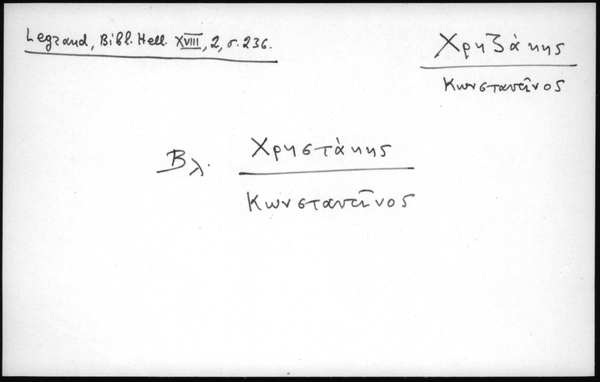 Legrand, Bibl. Hell. XVIII, 2, σ. 236.
Χρηζάκης
Κωνσταντῖνος
Βλ. Χρηστάκης
Κωνσταντῖνος